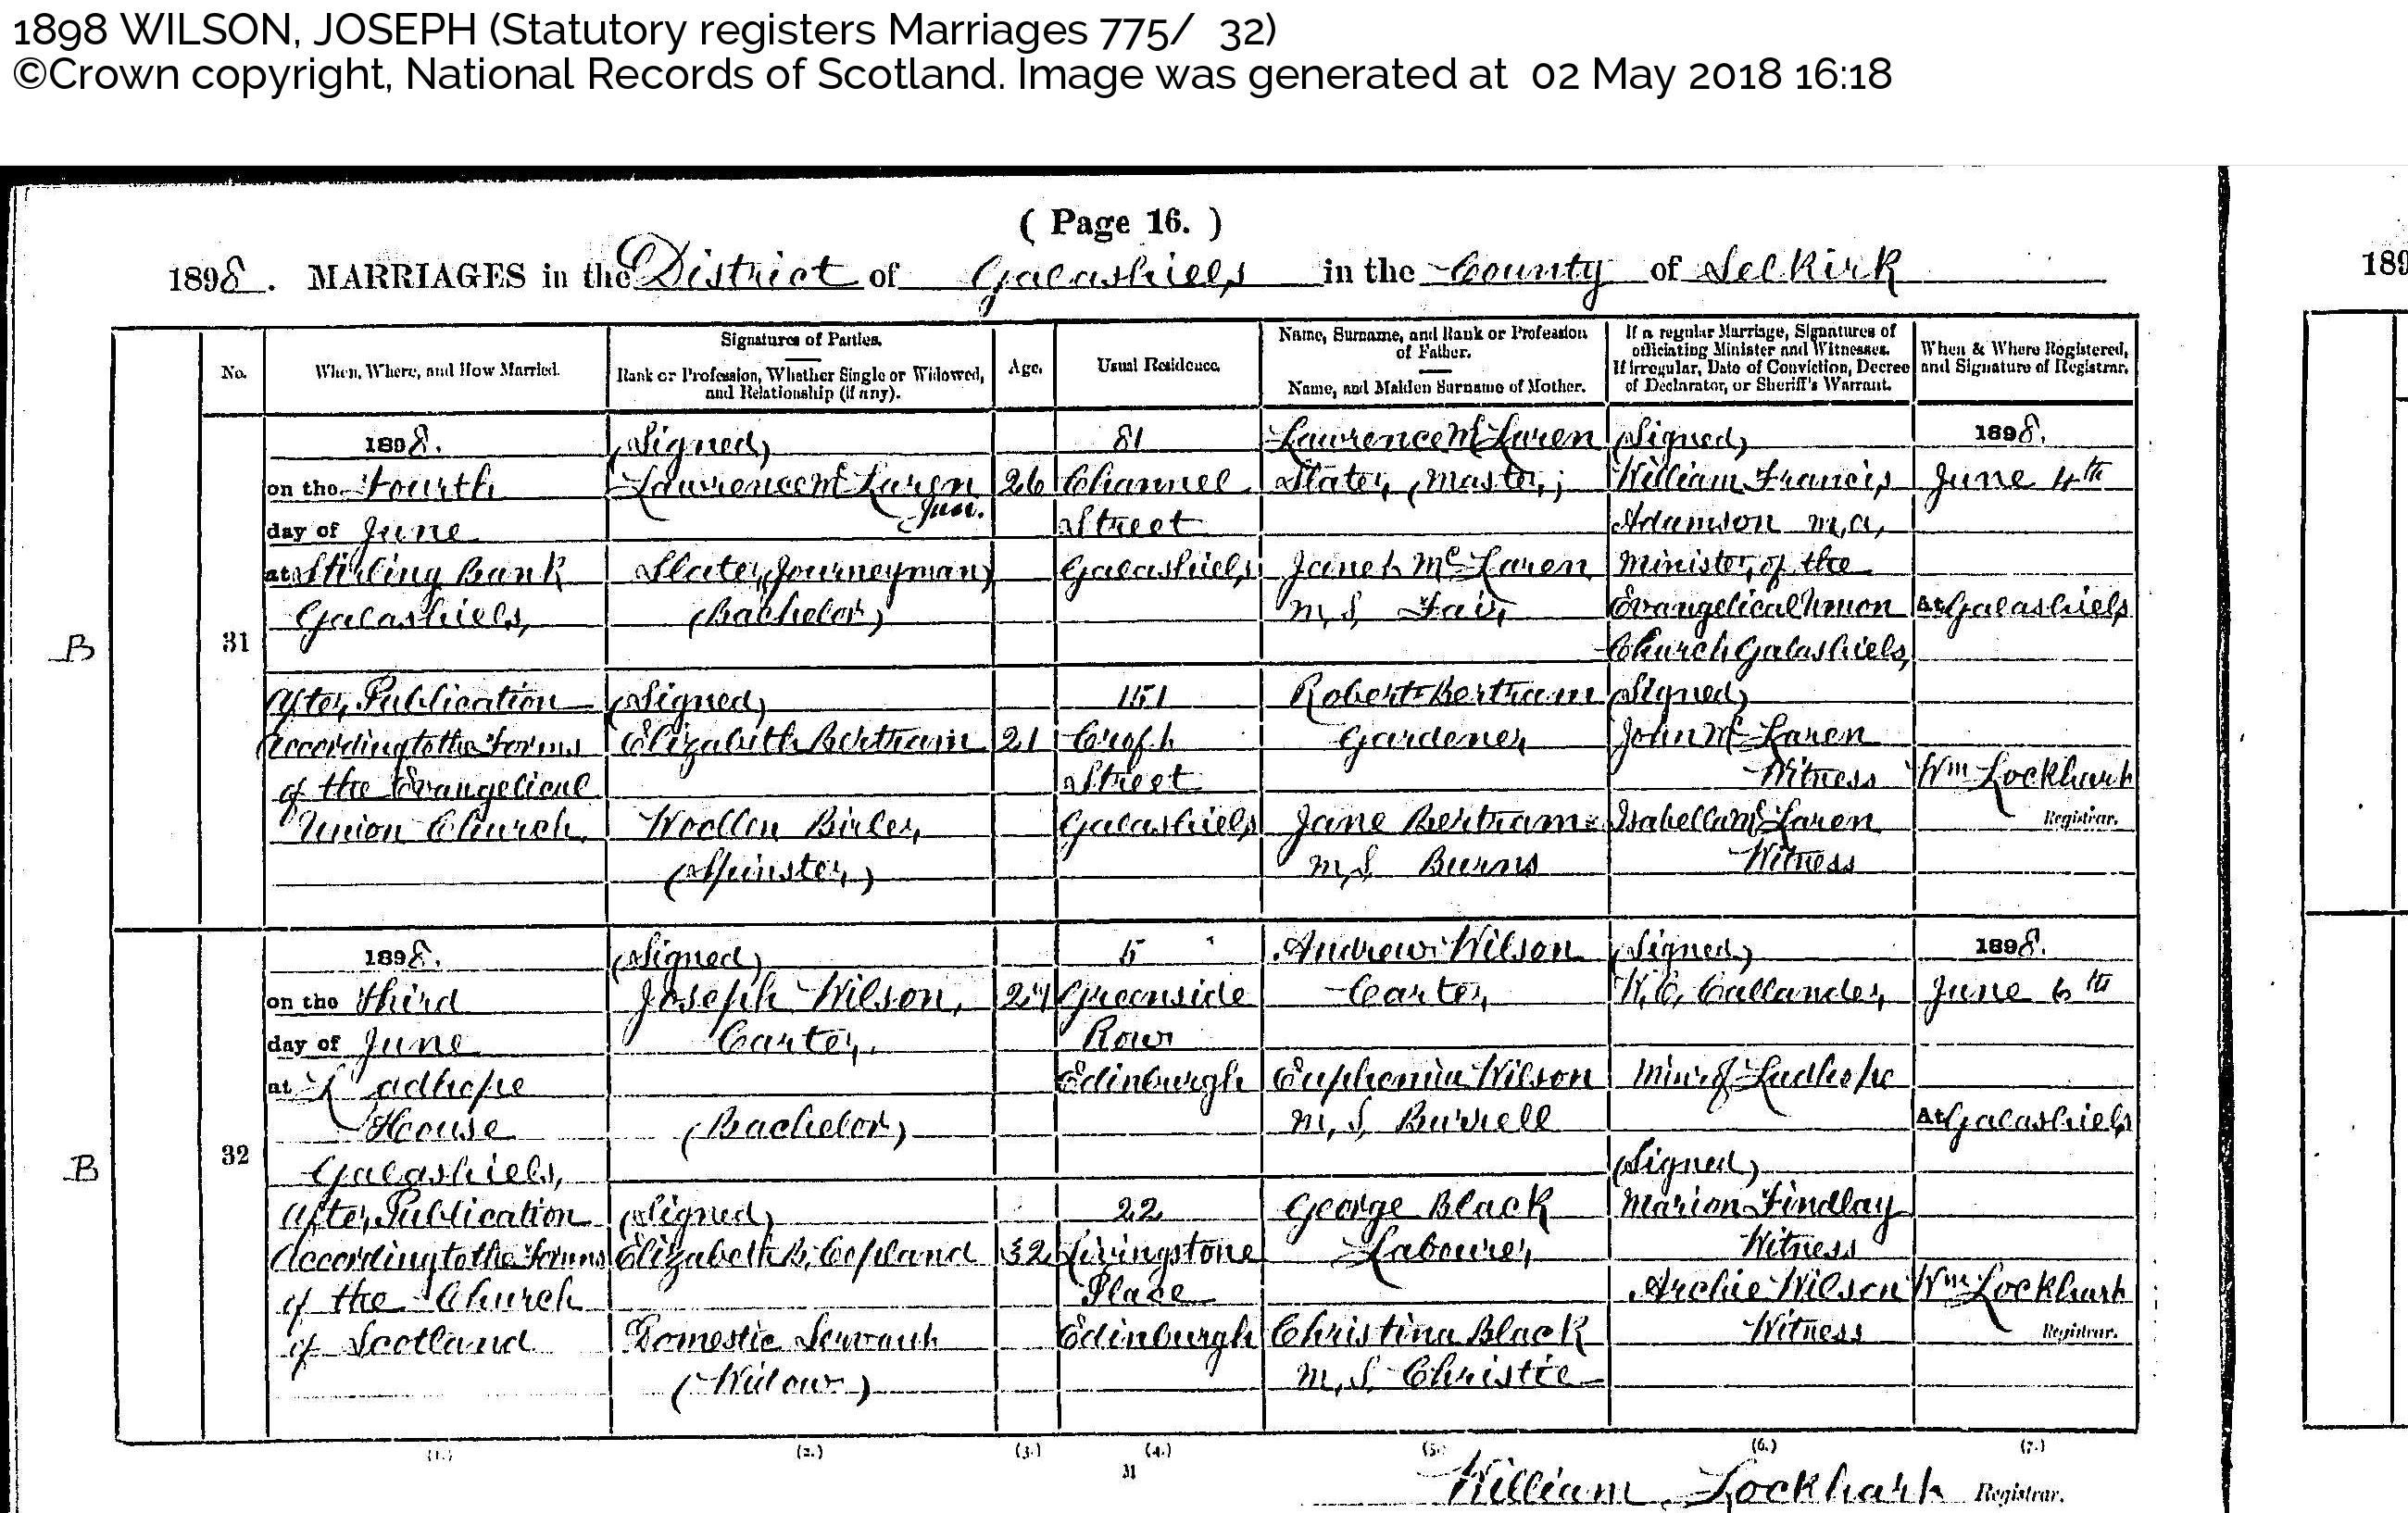 1898 WILSON, JOSEPH (Statutory registers Marriages 775/ 32)
©Crown copyright, National Records of Scotland. Image was generated at 02 May 2018 16:18
( Page 16. )
1898. MARRIAGES in the District of Galashiels in the County of Selkirk
189
No.
When, Where, and How Married.
Signatures of Parties.
Rank or Profession, Whether Single or Widowed,
and Relationship (if any).
Age.
Usual Residence.
Name, Surname, and Rank or Profession
of Father.
Name, and Maiden Surname of Mother.
If a regular Marriage, Signatures of
officiating Minister and Witnesses.
If irregular, Date of Conviction, Decree
of Declarator, or Sheriff's Warrant.
When & Where Registered,
and Signature of Registrar.
B
31
1898.
on the Fourth
day of June
at Stirling Bank
Galashiels,
After Publication
According to the Forms
of the Evangelical
Union Church.
(Signed)
Lawrence Mc Laren
Jun.
Slater (Journeyman)
(Bachelor)
(Signed)
Elizabeth Bertram
Woollen Birler,
(Spinster)
26
21
81
Channel
Street
Galashiels
151
Croft
Street
Galashiels
Lawrence Mc Laren
Slater, (Master);
Janet Mc Laren
m.S. Fair,
Robert Bertram
Gardener,
Jane Bertram
m.S. Burns
(Signed)
William Francis
Adamson M.A,
Minister of the
Evangelical Union
Church Galashiels,
(Signed)
John Mc Laren
Witness
Isabella Mc Laren
Witness
1898.
June 4th
At Galashiels
Wm Lockhart
Registrar.
B
32
1898.
on the Third
day of June
at Ladhope
House
Galashiels,
After Publication
According to the Forms
of the Church
of Scotland
(Signed)
Joseph Wilson,
Carter,
(Bachelor)
(Signed)
Elizabeth B. Copland
Domestic Servant
(Widow)
32
5
Greenside
Row
Edinburgh
22
Livingstone
Place
Edinburgh
Andrew Wilson
Carter,
Euphemia Wilson
m.S. Burrell
George Black
Labourer,
Christina Black
m.S. Christie
(Signed)
W. C. Callander,
Minr of Ladhope
(Signed)
Marion Findlay
Witness
Archie Wilson
Witness
1898.
June 6th
At Galashiels
Wm Lockhart
Registrar.
(1.)
(2.)
(3.)
(4.)
(5.)
(6.)
(7.)
M
William Lockhart Registrar.